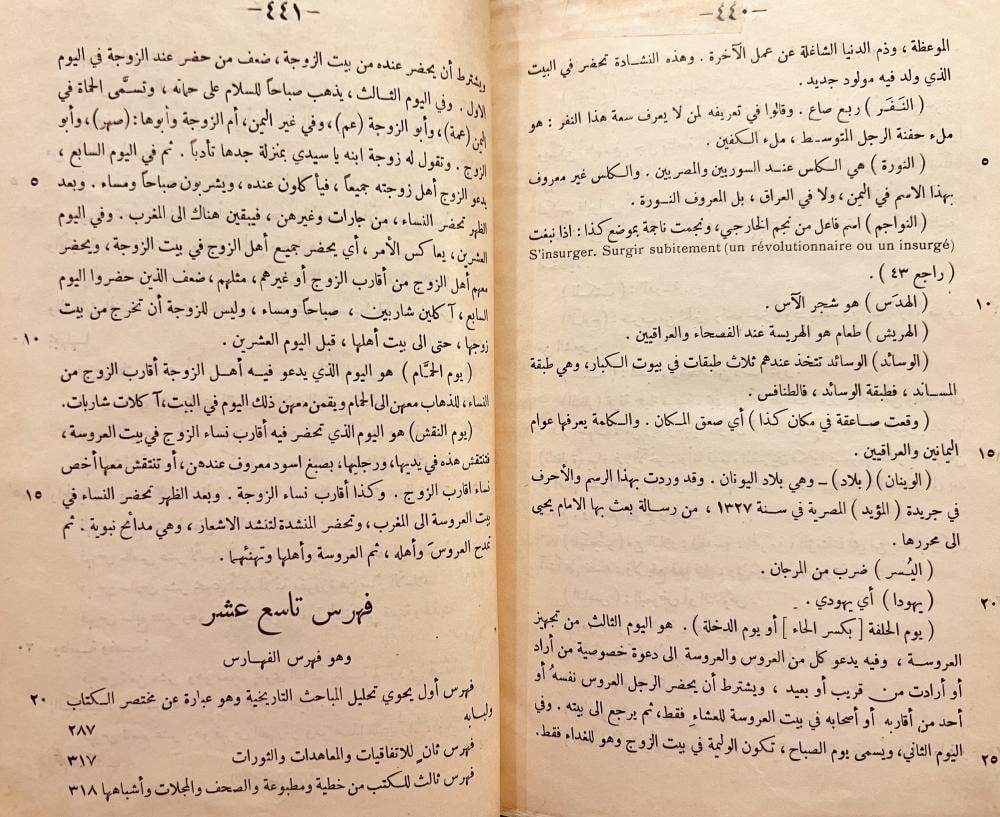 -٤٤٠-
الموعظة ، وذم الدنيا الشاغلة عن عمل الآخرة . وهذه النشادة تحضر في البيت
الذي ولد فيه مولود جديد .
( النَفَر ) ربع صاع . وقالوا في تعريفه لمن لا يعرف سعة هذا النفر : هو
ملء حفنة الرجل المتوسـط ، ملء الـكفين .
( النورة ) هي الكلس عنـد السوريين والمصريين . والكلس غير معروف ٥
بهذا الاسم في اليمن، ولا في العراق ، بل المعروف النـورة .
( النواجم ) اسم فاعل من نجم الخارجي، ونجمت ناجمة بموضع كذا : اذا نبغت
S'insurger. Surgir subitement (un révolutionnaire ou un insurgé)
( راجع ٤٣ ) .
( الهدَس ) هو شجر الآس . ١٠
( الهريش ) طعام هو الهريسة عند الفصحاء والعراقيين .
( الوسائد ) الوسائد تتخذ عندهم ثلاث طبقات في بيوت الـكبار، وهي طبقة
المسـاند ، فطبقة الوسائد ، فالطنافس .
( وقعت صـاعقة في مكان كذا ) أي صعق المـكان . والـكلمة يعرفها عوام
اليمانين والعراقيين . ١٥
( الوينان ) ( بلاد ) ــ وهي بلاد اليونان . وقد وردت بهذا الرسم والأحرف
في جريدة ( المؤيد ) المصرية في سنة ١٣٢٧ ، من رسـالة بعث بها الامام يحيى
الى محررها .
( اليُسر ) ضرب من المرجان .
( يهودا ) أي يهودي . ٢٠
( يوم الحلفة [ بكسر الحاء ] أو يوم الدخلة ) . هو اليوم الثالث من تجهيز
العروسـة ، وفيه يدعو كل من العروس والعروسة الى دعوة خصوصية من أراد
أو أرادت من قريب أو بعيد ، ويشترط أن يحضر الرجل العروس نفسهُ أو
أحد من أقاربه أو أصحابه في بيت العروسة للعشاء فقط، ثم يرجع الى بيته . وفي
اليوم الثاني، ويسمى يوم الصباح ، تكون الوليمة في بيت الزوج وهو للغداء فقط. ٢٥
-٤٤١-
ويشترط أن يحضر عنده من بيت الزوجة ، ضعف من حضر عند الزوجة في اليوم
الاول . وفي اليوم الثـالث ، يذهب صباحاً للسلام على حماته ، وتسمَّى الحماة في
اليمن (عمة)، وأبو الزوجة (عم)، وفي غير اليمن، أم الزوجة وأبوها : (صهر)، وأبو
الزوج . وتقول له زوجة ابنه يا سيدي بمنزلة جدها تأدباً . ثم في اليوم السابع ،
يدعو الزوج أهل زوجته جميعاً ، فيأكلون عنده ، ويشربون صباحاً ومساء . وبعد ٥
الظهر تحضر النساء ، من جارات وغيرهن ، فيبقين هناك الى المغرب . وفي اليوم
العشرين، يعاكس الأمر، أي يحضر جميع أهل الزوج في بيت الزوجة، ويحضر
معهم أهل الزوج من أقارب الزوج أو غيرهم ، مثلهم ، ضعف الذين حضروا اليوم
السابع ، آكلين شاربين ، صباحاً ومساء ، وليس للزوجة أن تخرج من بيت
زوجها ، حتى الى بيت أهلها ، قبل اليوم العشرين . ١٠
( يوم الحمَّام ) هو اليوم الذي يدعو فيـه أهـل الزوجة أقارب الزوج من
النساء ، للذهاب معهن الى الحمام ويقمن معهن ذلك اليوم في البيت، آكلات شاربات.
( يوم النقش ) هو اليوم الذي تحضر فيه أقارب نساء الزوج في بيت العروسة ،
فتنتقش هذه في يديها، ورجليها، بصبغ اسود معروف عندهن، أو تنتقش معها أخص
نساء اقارب الزوج . وكذا أقارب نساء الزوجة . وبعد الظهر تحضر النساء في ١٥
بيت العروسة الى المغرب، وتحضر المنشدة لتنشد الاشعار ، وهي مدائح نبوية . ثم
تمدح العروسَ وأهله ، ثم العروسة وأهلها وتهنئهما .
فهرس تاسع عشر
وهو فهرس الفهارس
فهرس أول يحوي تحليل المباحث التاريخية وهو عبارة عن مختصر الـكتاب ٢٠
ولبابه ٢٨٧
فهرس ثان للاتفاقيات والمعاهدات والثورات ٣١٧
فهرس ثالث للـكتب من خطية ومطبوعة والصحف والمجلات وأشباهها ٣١٨